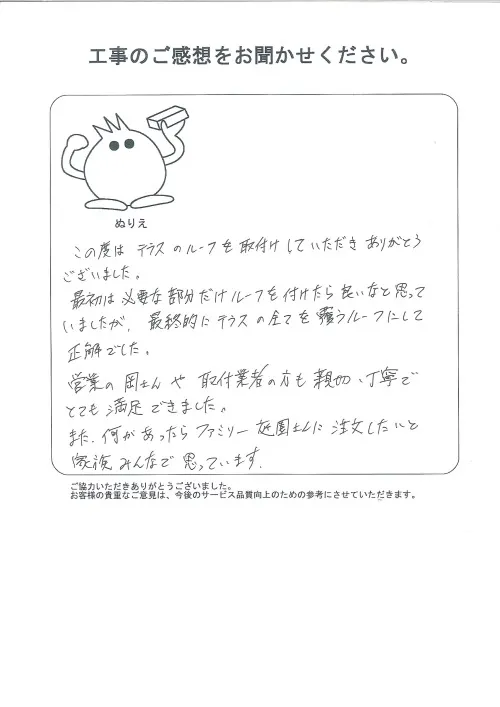 工事のご感想をお聞かせください。
ぬりえ
この度は テラスのルーフを取付けしていただきありがとう
ございました。
最初は必要な部分だけルーフを付けたら良いなと思って
いましたが、最終的にテラスの全てを覆うルーフにして
正解でした。
営業の岡さんや 取付業者の方も 親切、丁寧で
とても満足できました。
また、何があったらファミリー庭園さんに注文したいと
家族みんなで思っています。
ご協力いただきありがとうございました。
お客様の貴重なご意見は、今後のサービス品質向上のための参考にさせていただきます。